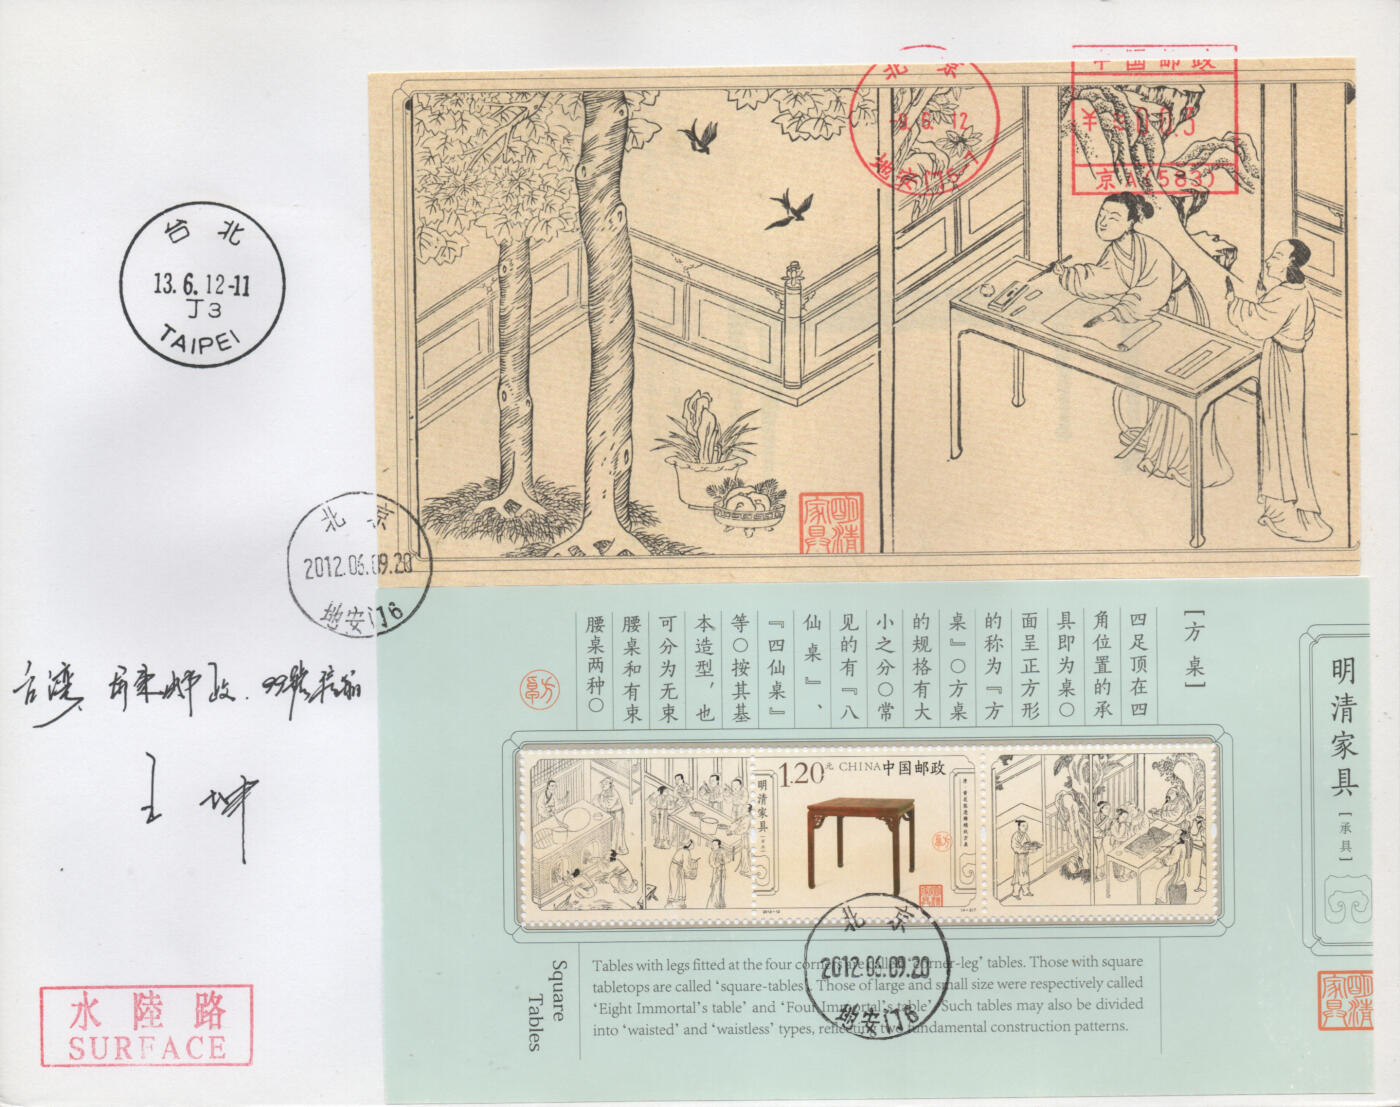 北 京
9. 6. 12
地安门5-7
中国邮政
京
台 北
13. 6. 12-11
J 3
TAIPEI
明清家具
北 京
2012.06.09.20
地安门6
台湾
王 坤
水 陸 路
SURFACE
[方桌]
四足顶在四
角位置的承
具即为桌〇
面呈正方形
的称为『方
桌』〇方桌
的规格有大
小之分〇常
见的有『八
仙桌』、
『四仙桌』
等〇按其基
本造型，也
可分为无束
腰桌和有束
腰桌两种〇
明清家具[承具]
1.20元 CHINA 中国邮政
明清家具
2012-12
明清家具
北 京
2012.06.09.20
地安门6
Square
Tables
Tables with legs fitted at the four corners are called 'corner-leg' tables. Those with square
tabletops are called 'square-tables'. Those of large and small size were respectively called
'Eight Immortal's table' and 'Four Immortal's table'. Such tables may also be divided
into 'waisted' and 'waistless' types, reflecting two fundamental construction patterns.
明清家具